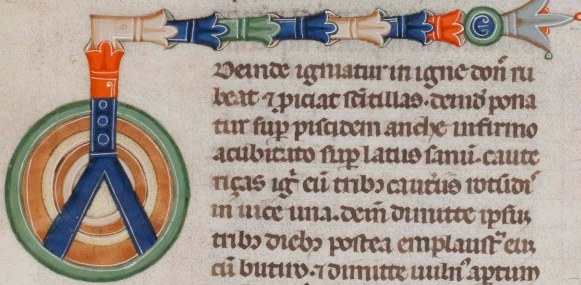 Deinde igniatur in igne don̄ ru
beat ⁊ ꝓiciat scītillas. deīd pona
tur suꝑ piscidem anche infirmo
acubitato suꝑ latus sanū. caute
riças igr̄ eū tribꝫ cautiis rotūdiˢ
in uice una. dein̄ dimitte ipsuꝫ
tribꝫ diebꝫ postea emplaustʳ euꝫ
cū butiro. ⁊ dimitte uuln̄ aꝑtum